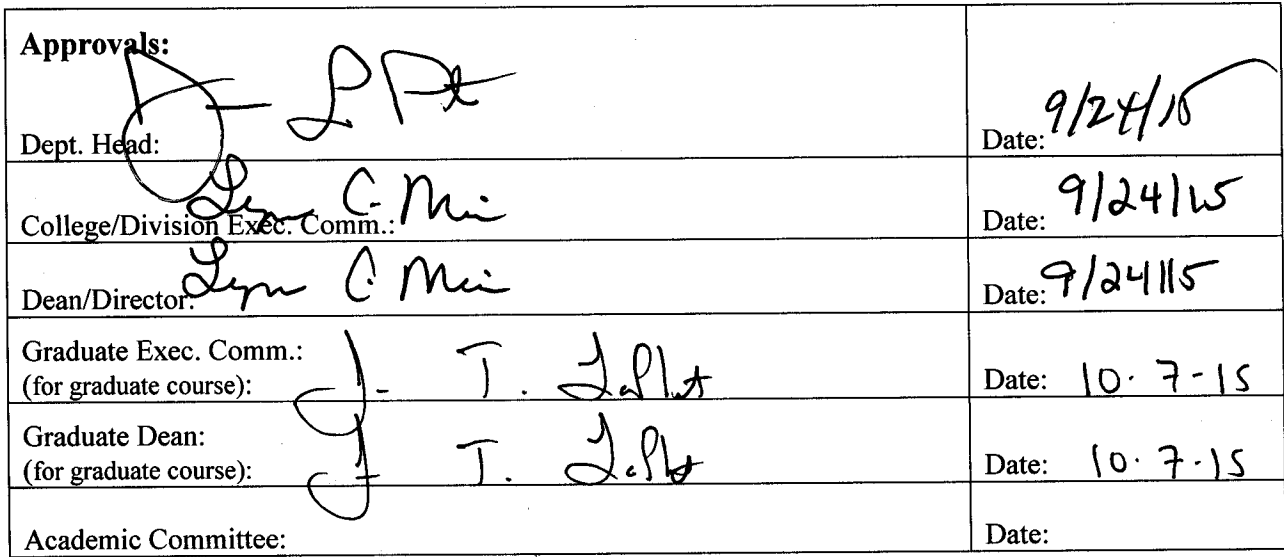 Approvals:
Dept. Head: Date: 9/24/15
College/Division Exec. Comm.: Lynn C. Date: 9/24/15
Dean/Director: Lynn C. Date: 9/24/15
Graduate Exec. Comm.:
(for graduate course): J. T. Date: 10-7-15
Graduate Dean:
(for graduate course): J T. Date: 10-7-15
Academic Committee: Date: